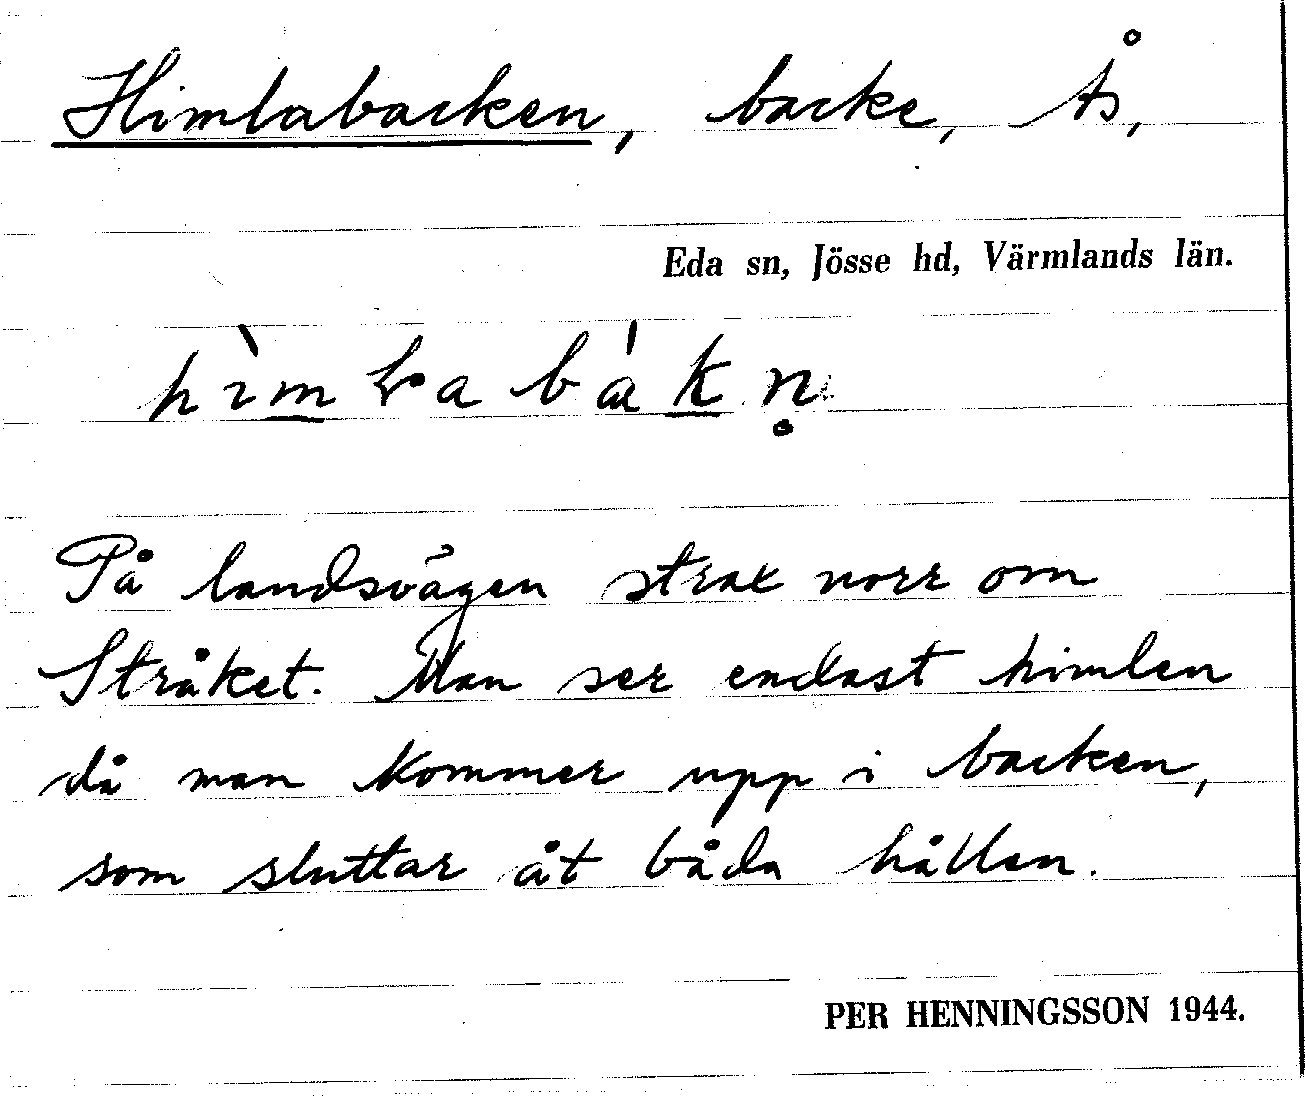 Himlabacken, backe, Ås,
Eda sn, Jösse hd, Värmlands län.
På landsvägen strax norr om
Stråket. Man ser endast himlen
då man kommer upp i backen,
som sluttar åt båda hållen.
PER HENNINGSSON 1944.